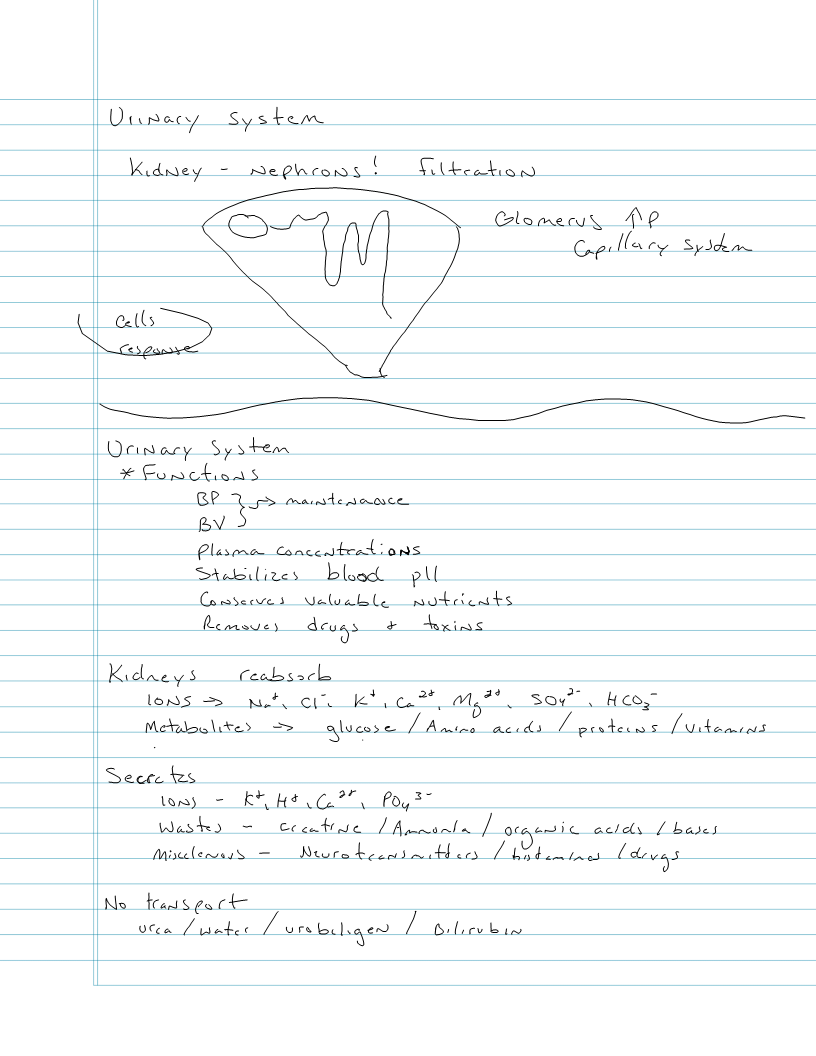 Urinary System
Kidney - Nephrons! filtration
Glomerus ↑P
Capillary system
Cells
response
Urinary System
* Functions
BP } → maintenance
BV
plasma concentrations
Stabilizes blood pH
Conserves valuable nutrients
Removes drugs + toxins
Kidneys reabsorb
Ions → Na⁺, Cl⁻, K⁺, Ca²⁺, Mg²⁺, SO₄²⁻, HCO₃⁻
Metabolites → glucose / Amino acids / proteins / vitamins
Secretes
Ions - K⁺, H⁺, Ca²⁺, PO₄³⁻
Wastes - creatine / Ammonia / organic acids / bases
Miscelenous - Neurotransmitters / histamines / drugs
No transport
urea / water / urobiligen / Bilirubin